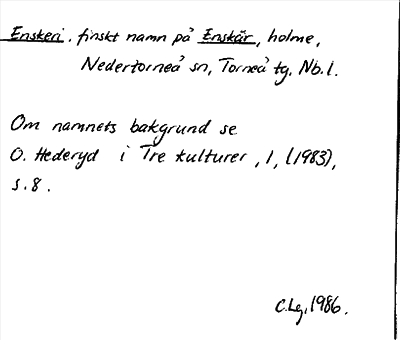 Enskeri, finskt namn på Enskär, holme,
Nedertorneå sn, Torneå tg. Nb.l.
Om namnets bakgrund se
O. Hederyd i Tre kulturer, 1, (1983),
s.8.
C.Lg, 1986.